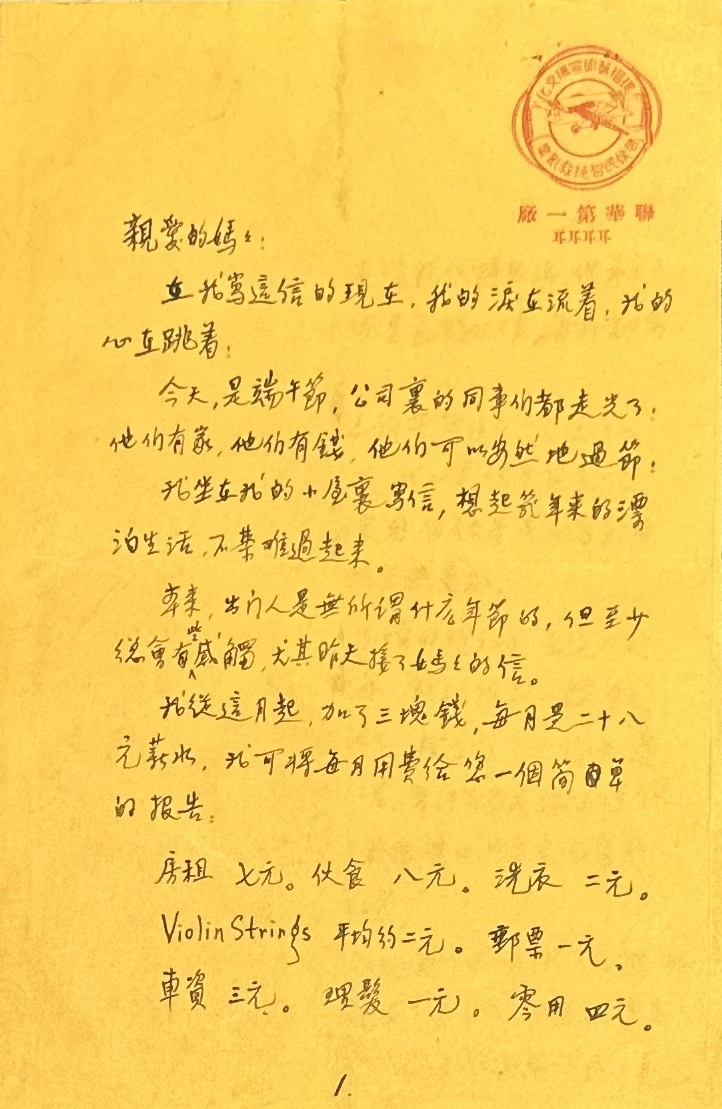 聯華第一廠
親愛的媽々：
在我寫這信的現在，我的淚在流着，我的
心在跳着；
今天，是端午節，公司裏的同事们都走光了；
他们有家，他们有錢，他们可以安然地過節；
我坐在我的小屋裏寫信，想起幾年來的漂
泊生活，不禁难過起来。
本来，出门人是無所謂什么年節的，但至少
總會有些感觸，尤其昨天接了媽々的信。
我從這月起，加了三塊錢，每月是二十八
元薪水，我可將每月用費给您一個简單
的报告：
房租 七元。伙食 八元。洗衣 二元。
Violin Strings 平均约二元。郵票一元、
車資 三元。理髮 一元。零用 四元。
1.